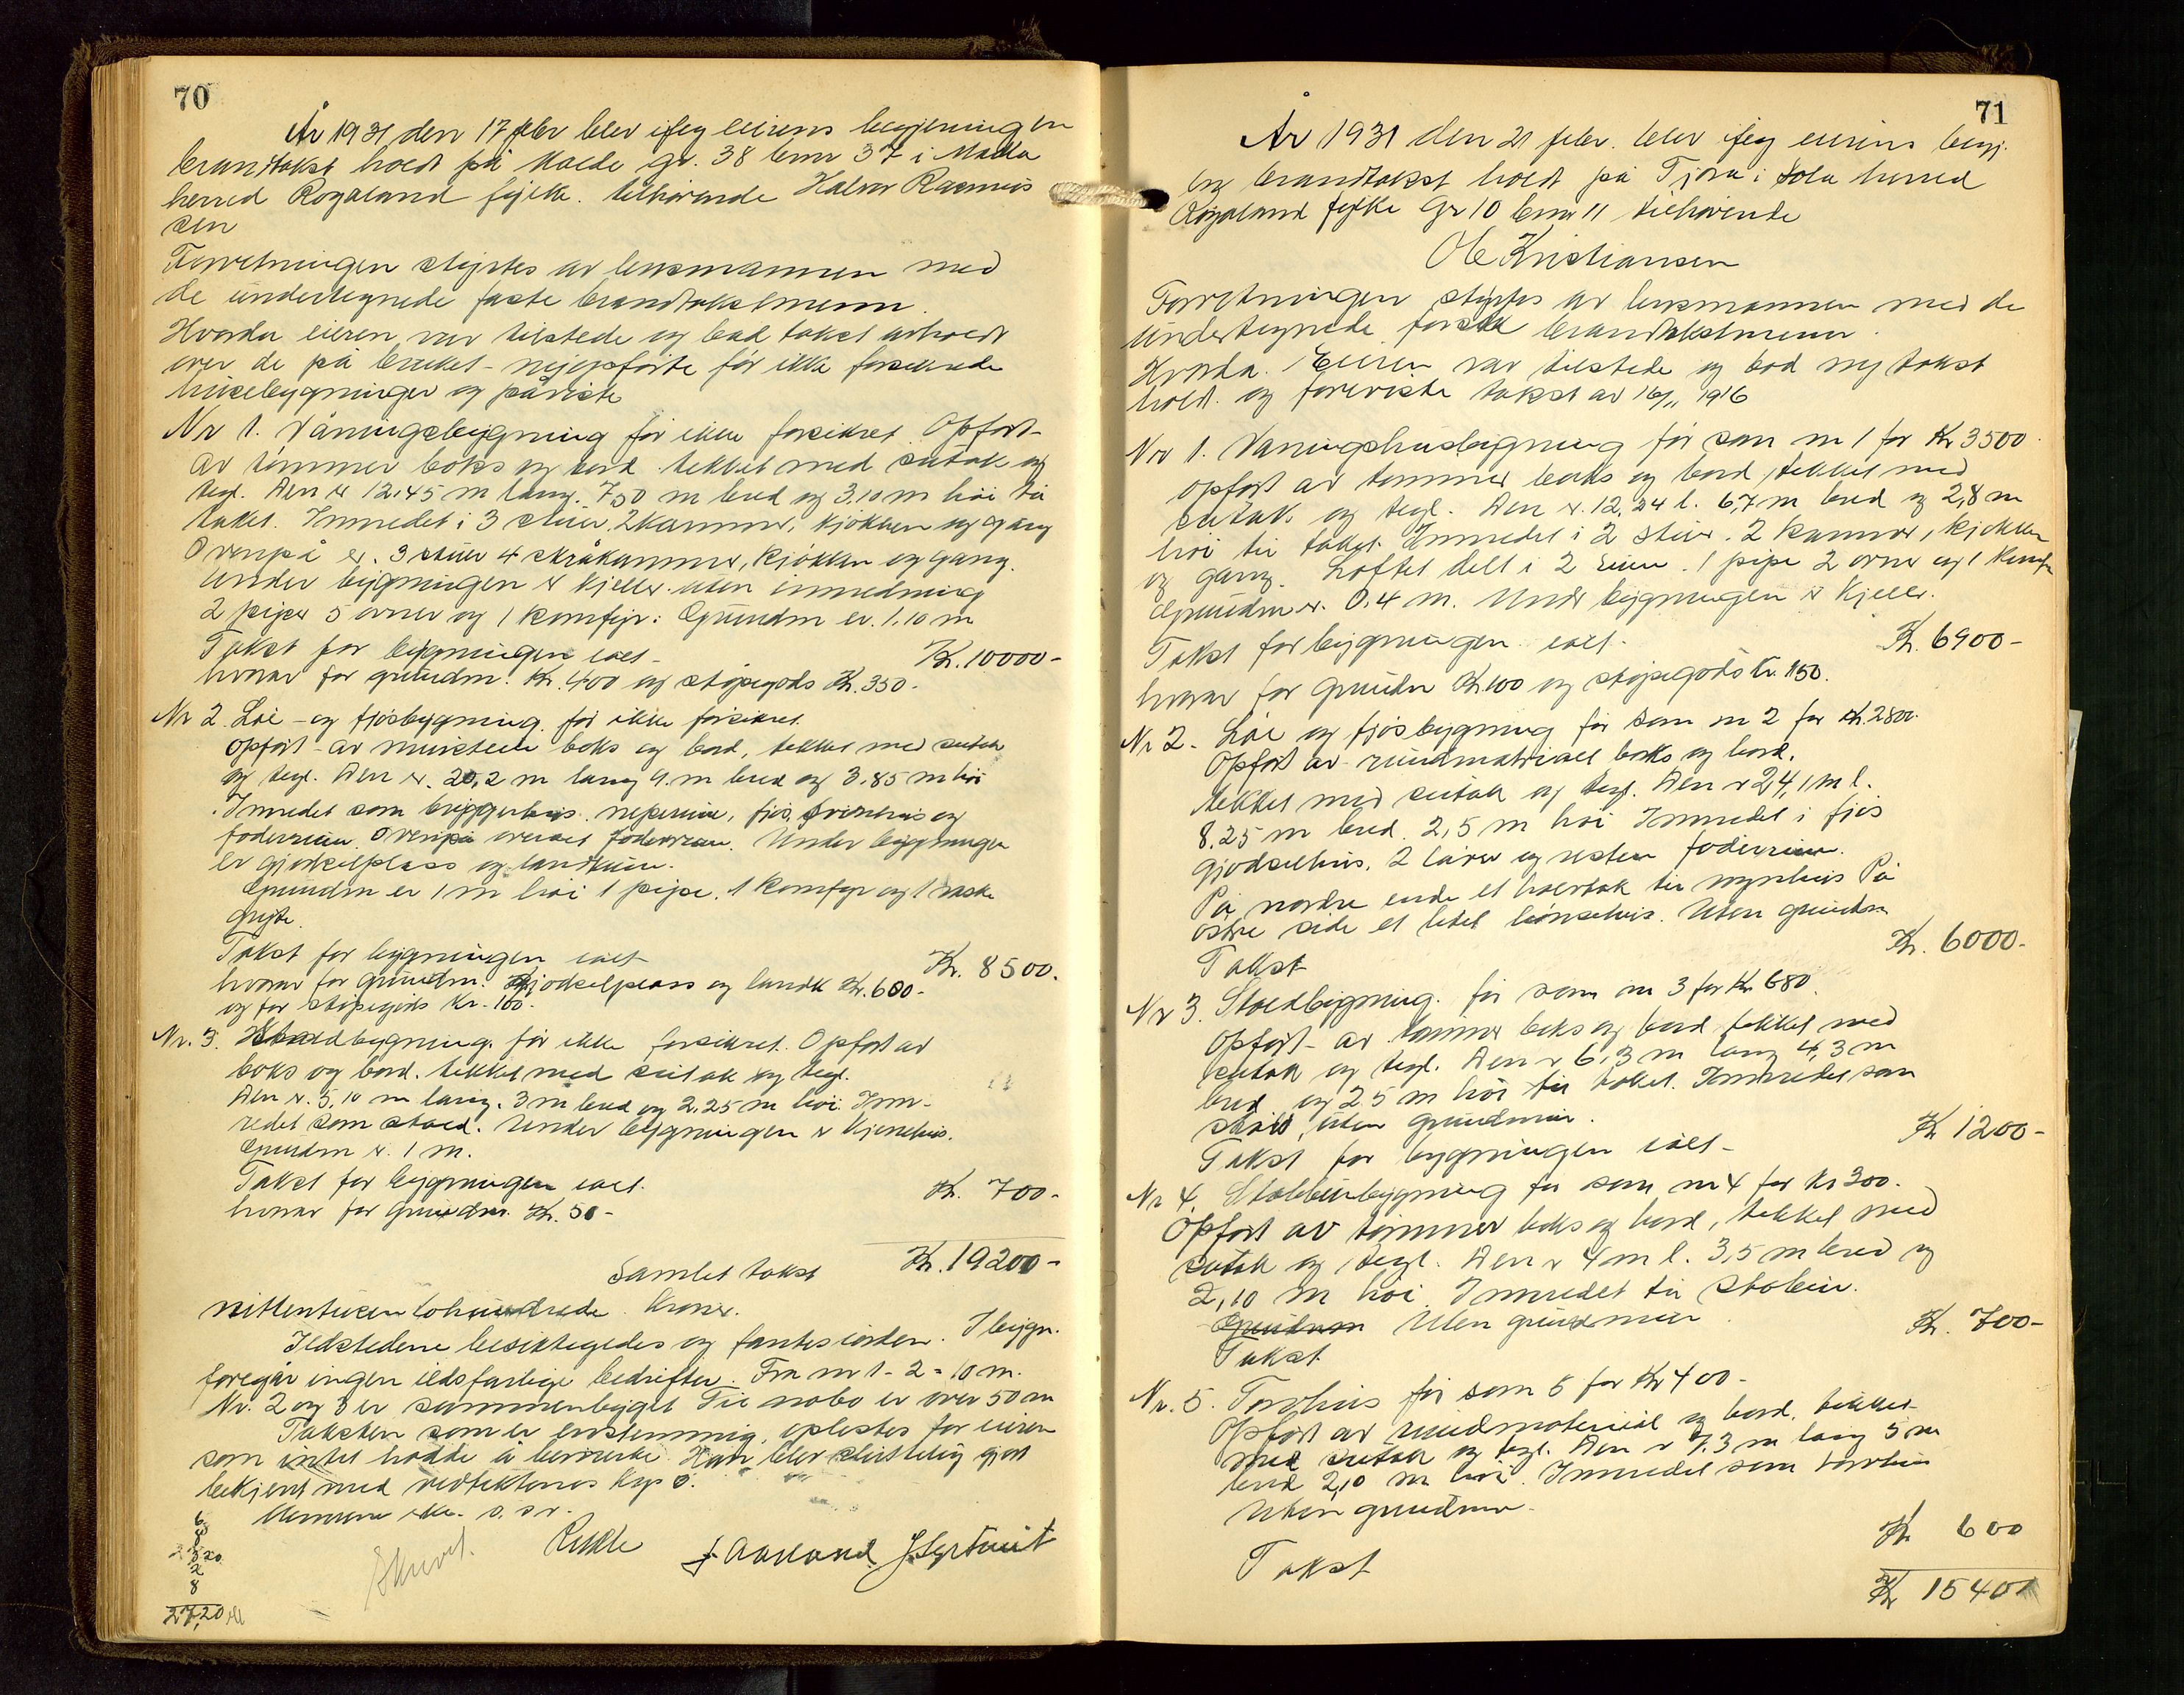 70
År 1931 den 17 febr blev ifølg eierens begjering en
brandtakst holdt på gr. 38 bnr 37 i Madla
herred Rogaland fylke. tilhørende Halvor Rasmus
sen
Forretningen styrtes av lensmannen med
de undertegnede faste brandtakstmenn.
Hvorda eieren var tilstede og bad takst avholdt
over de på bruket nyopførte før ikke forsikrede
husebygninger og påviste
Nr 1. Våningsbygning før ikke forsikret. Opført
av tømmer boks og bord tekket med sutak og
tegl. Den er 12,45 m lang. 7,50 m bred og 3,10 m høi til
taket. Innredet i 3 stuer, 2 kammer, kjøkken og gang
Ovenpå er. 3 stuer 4 skråkammer, kjøkken og gang.
Under bygningen er kjeller uten innredning
2 piper 5 ovner og 1 komfyr. Grundm er. 1.10 m
Takst for bygningen ialt Kr. 10000-
hvorav for grundm. Kr. 400 og støpegods Kr. 350-
Nr 2. Løe- og fjøsbygning. før ikke forsikret.
Opført av murstein boks og bord, tekket med sutak
og tegl. Den er. 20,2 m lang 9. m bred og 3.85 m høi
Innredet som bryggerhus neperum, fjøs, svinehus og
foderrum. Ovenpå overalt foderrum. Under bygningen
er gjødselplass og landkum.
Grundm er 1 m høi 1 pipe. 1 komfyr og 1 vaske
gryte.
Takst for bygningen ialt Kr. 8500.
hvorav for grundm. gjødselplass og landk Kr. 600-
og for støpegods Kr. 100-
Nr. 3. Stoldbygning. før ikke forsikret. Opført av
boks og bord. tekket med sutak og tegl.
Den er. 5,10 m lang. 3 m bred og 2,25 m høi. Inn-
redet som stold. Under bygningen er hønsehus.
Grundm er. 1 m.
Takst for bygningen ialt. Kr. 700-
hvorav for grundm. Kr. 50-
Samlet takst Kr. 19200-
nittentusentohundrede kroner.
Ildstedene besiktegedes og fantes iorden. I bygn.
foregår ingen ildsfarlige bedrifter. Fra nr 1-2 = 10 m.
Nr. 2 og 3 er sammenbygget Til nabo er over 50 m
Taksten som er enstemmig, oplestes for eieren
som intet hadde å bemerke. Han blev skriftelig gjort
bekjent med vedtektenes kap 5.
6
8
3,20
2
8
27,20
71
År 1931 den 21 febr. blev ifølg eierens begj.
en brandtakst holdt på Tjora i Sola herred
Rogaland fylke Gr 10 bnr 11 tilhørende
Ole Kristiansen
Forretningen styrtes av lensmannen med de
undertegnede faste brandtakstmenn.
Hvorda. Eieren var tilstede og bad ny takst
holdt og foreviste takst av 16/11 1916
Nr 1. Vaningshusbygning før som nr 1 for Kr 3500.
Opført av tømmer boks og bord, tekket med
sutak og tegl. Den er. 12,24 l. 6,7 m bred og 2,8 m
høi til taket. Innredet i 2 stuer. 2 kammer, kjøkken
og gang. Loftet delt i 2 rum. 1 pipe 2 ovner og 1 komfyr
Grundm er. 0,4 m. Under bygningen er kjeller.
Takst for bygningen ialt. Kr. 6900-
hvorav for grundm Kr 100 og støpegods Kr. 150.
Nr 2. Løe og fjøsbygning før som nr 2 for Kr. 2800.
Opført av rundmatriall boks og bord.
tekket med sutak og tegl. Den er 24,1 m l.
8,25 m bred. 2,5 m høi Innredet i fjøs
gjødselhus, 2 låver og resten foderrum.
På nordre ende et halvtak til vognhus På
østre side et litet hønsehus. Uten grundm.
Takst Kr. 6000-
Nr 3. Stoldbygning. før som nr 3 for Kr 680.
Opført av tømmer boks og bord tekket med
sutak og tegl. Den er 6,3 m lang 4,3 m
bred og 2.5 m høi til taket. Innredet som
stold, uten grundmur.
Takst for bygningen ialt Kr 1200-
Nr 4. Stabburbygning før som nr 4 for Kr 300.
Opført av tømmer boks og bord, tekket med
sutak og tegl. Den er 4 m l. 3,5 m bred og
2,10 m høi. Innredet til stabur.
Grundmm Uten grundmur
Takst. Kr. 700-
Nr. 5. Torvhus før som 5 for Kr 400-
Opført av rundmateriall og bord, tekket
med sutak og tegl. Den er 7,3 m lang 5 m
bred 2,10 m høi. Innredet som torvhus
Uten grundmur.
Takst Kr 600
Kr 15400